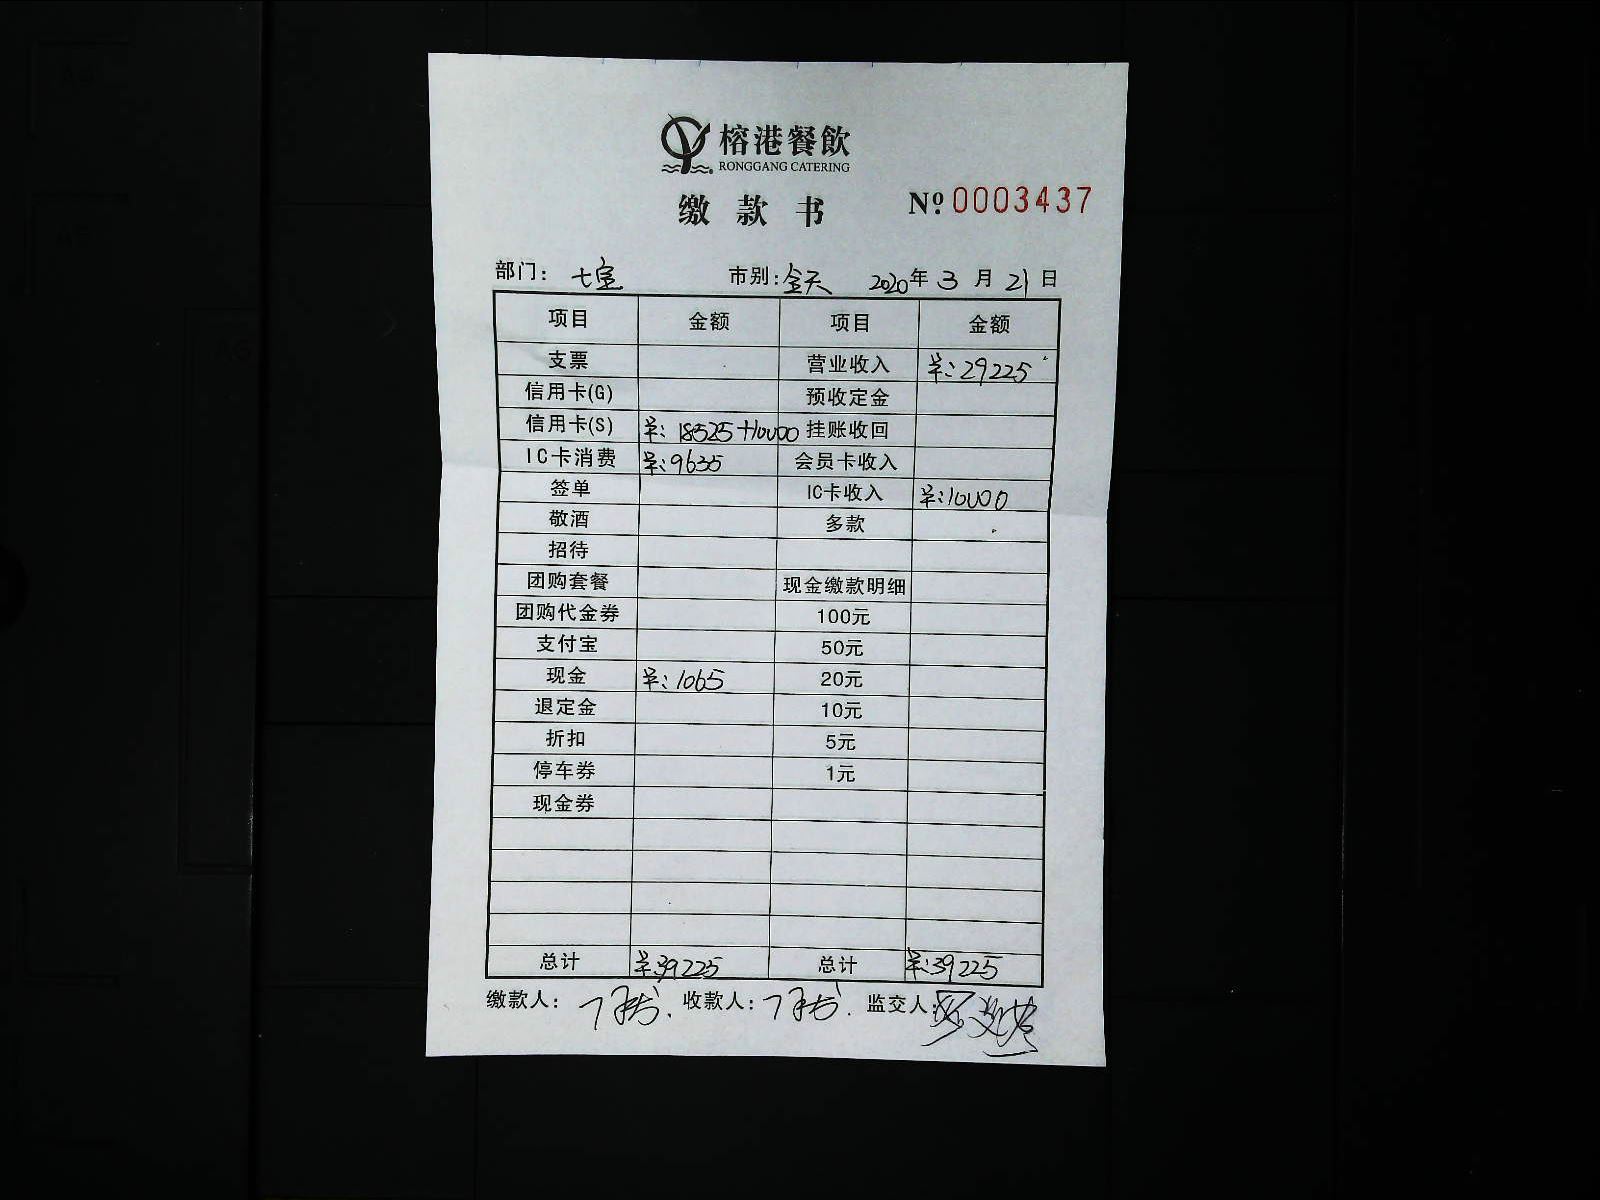 榕港餐飲
RONGGANG CATERING
缴款书 Nº 0003437
部门: 七宝 市别: 全天 2020年3月21日
项目 金额 项目 金额
支票 营业收入 ¥:29225
信用卡(G) 预收定金
信用卡(S) ¥:18525+10000 挂账收回
IC卡消费 ¥:9635 会员卡收入
签单 IC卡收入 ¥:10000
敬酒 多款
招待
团购套餐 现金缴款明细
团购代金券 100元
支付宝 50元
现金 ¥:1065 20元
退定金 10元
折扣 5元
停车券 1元
现金券
总计 ¥:39225 总计 ¥:39225
缴款人: 收款人: 监交人: